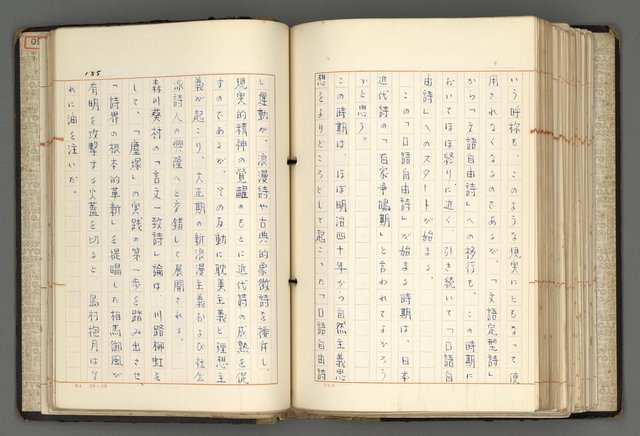 いう呼称も、このような現実にともなって使
用されなくなるのであるが、「文語定型詩」
から、「文語自由詩」への移行も、この時期に
おいてほぼ終りに近く、引き続いて「口語自
由詩」へのスタートが始まる。
この「口語自由詩」が始まる時期は、日本
近代詩の「百家争鳴期」と言われてるがろう
かと思う。
この時期は、ほぼ明治四十年かつ自然主義思
想をよりどころとして起こった「口語自由詩
155
し運動が、浪漫詩や古典的象徴詩を擡斥し、
現実的精神の覚醒のもとに近代詩の成熟を促
すのであるが、その反動に耽美主義と理想主
義が起こり、大正期の新浪漫主義および社会
派詩人の興隆へと交錯して展開される。
森川葵村の「言文一致詩」論は、川路柳虹を
して、「塵塚」の実践の第一歩を踏み出させ、
「詩界の根本的革新」を提唱した相馬御風が
有明を攻撃する火蓋を切ると、島村抱月はそ
れに油を注いだ。